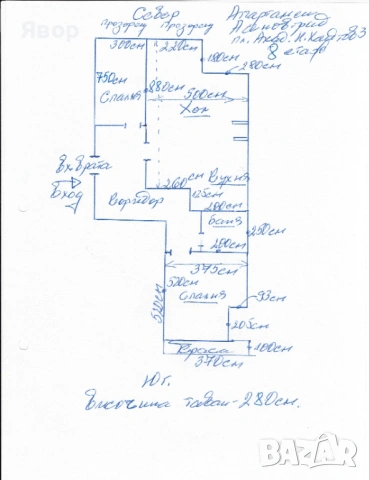 Явор
Север
Прозорец Прозорец
Апартамент
Асеновград
8 етаж
300см
220см
180см
280см
750см
Спалня
880см
500см
Хол
Вх. врата
Вход
260см
Кухня
125см
Коридор
200см
Баня
250см
200см
375см
520см
520см
Спалня
93см
205см
Тераса
100см
370см
Юг.
Височина таван - 280см.
BAZAR